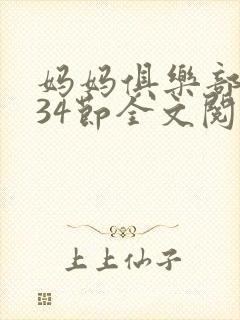 妈妈俱樂部
34節全文閱
上上仙子